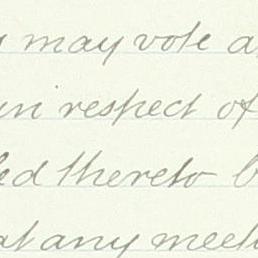 may vote a
in respect of
ed thereto b
at any meet